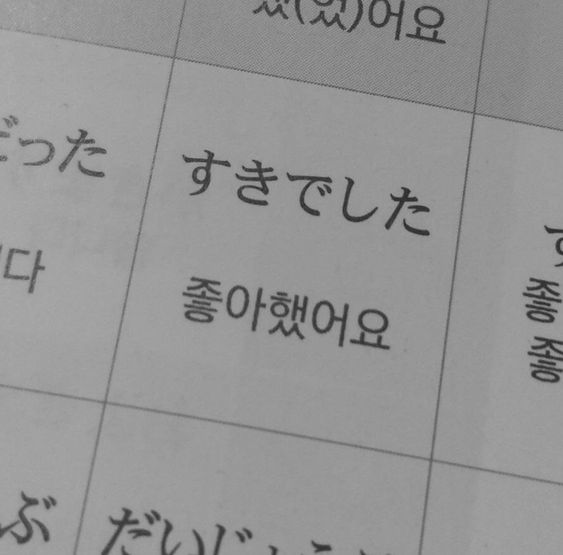 (었)어요
だった
すきでした
다
좋아했어요
좋
좋
ぶ